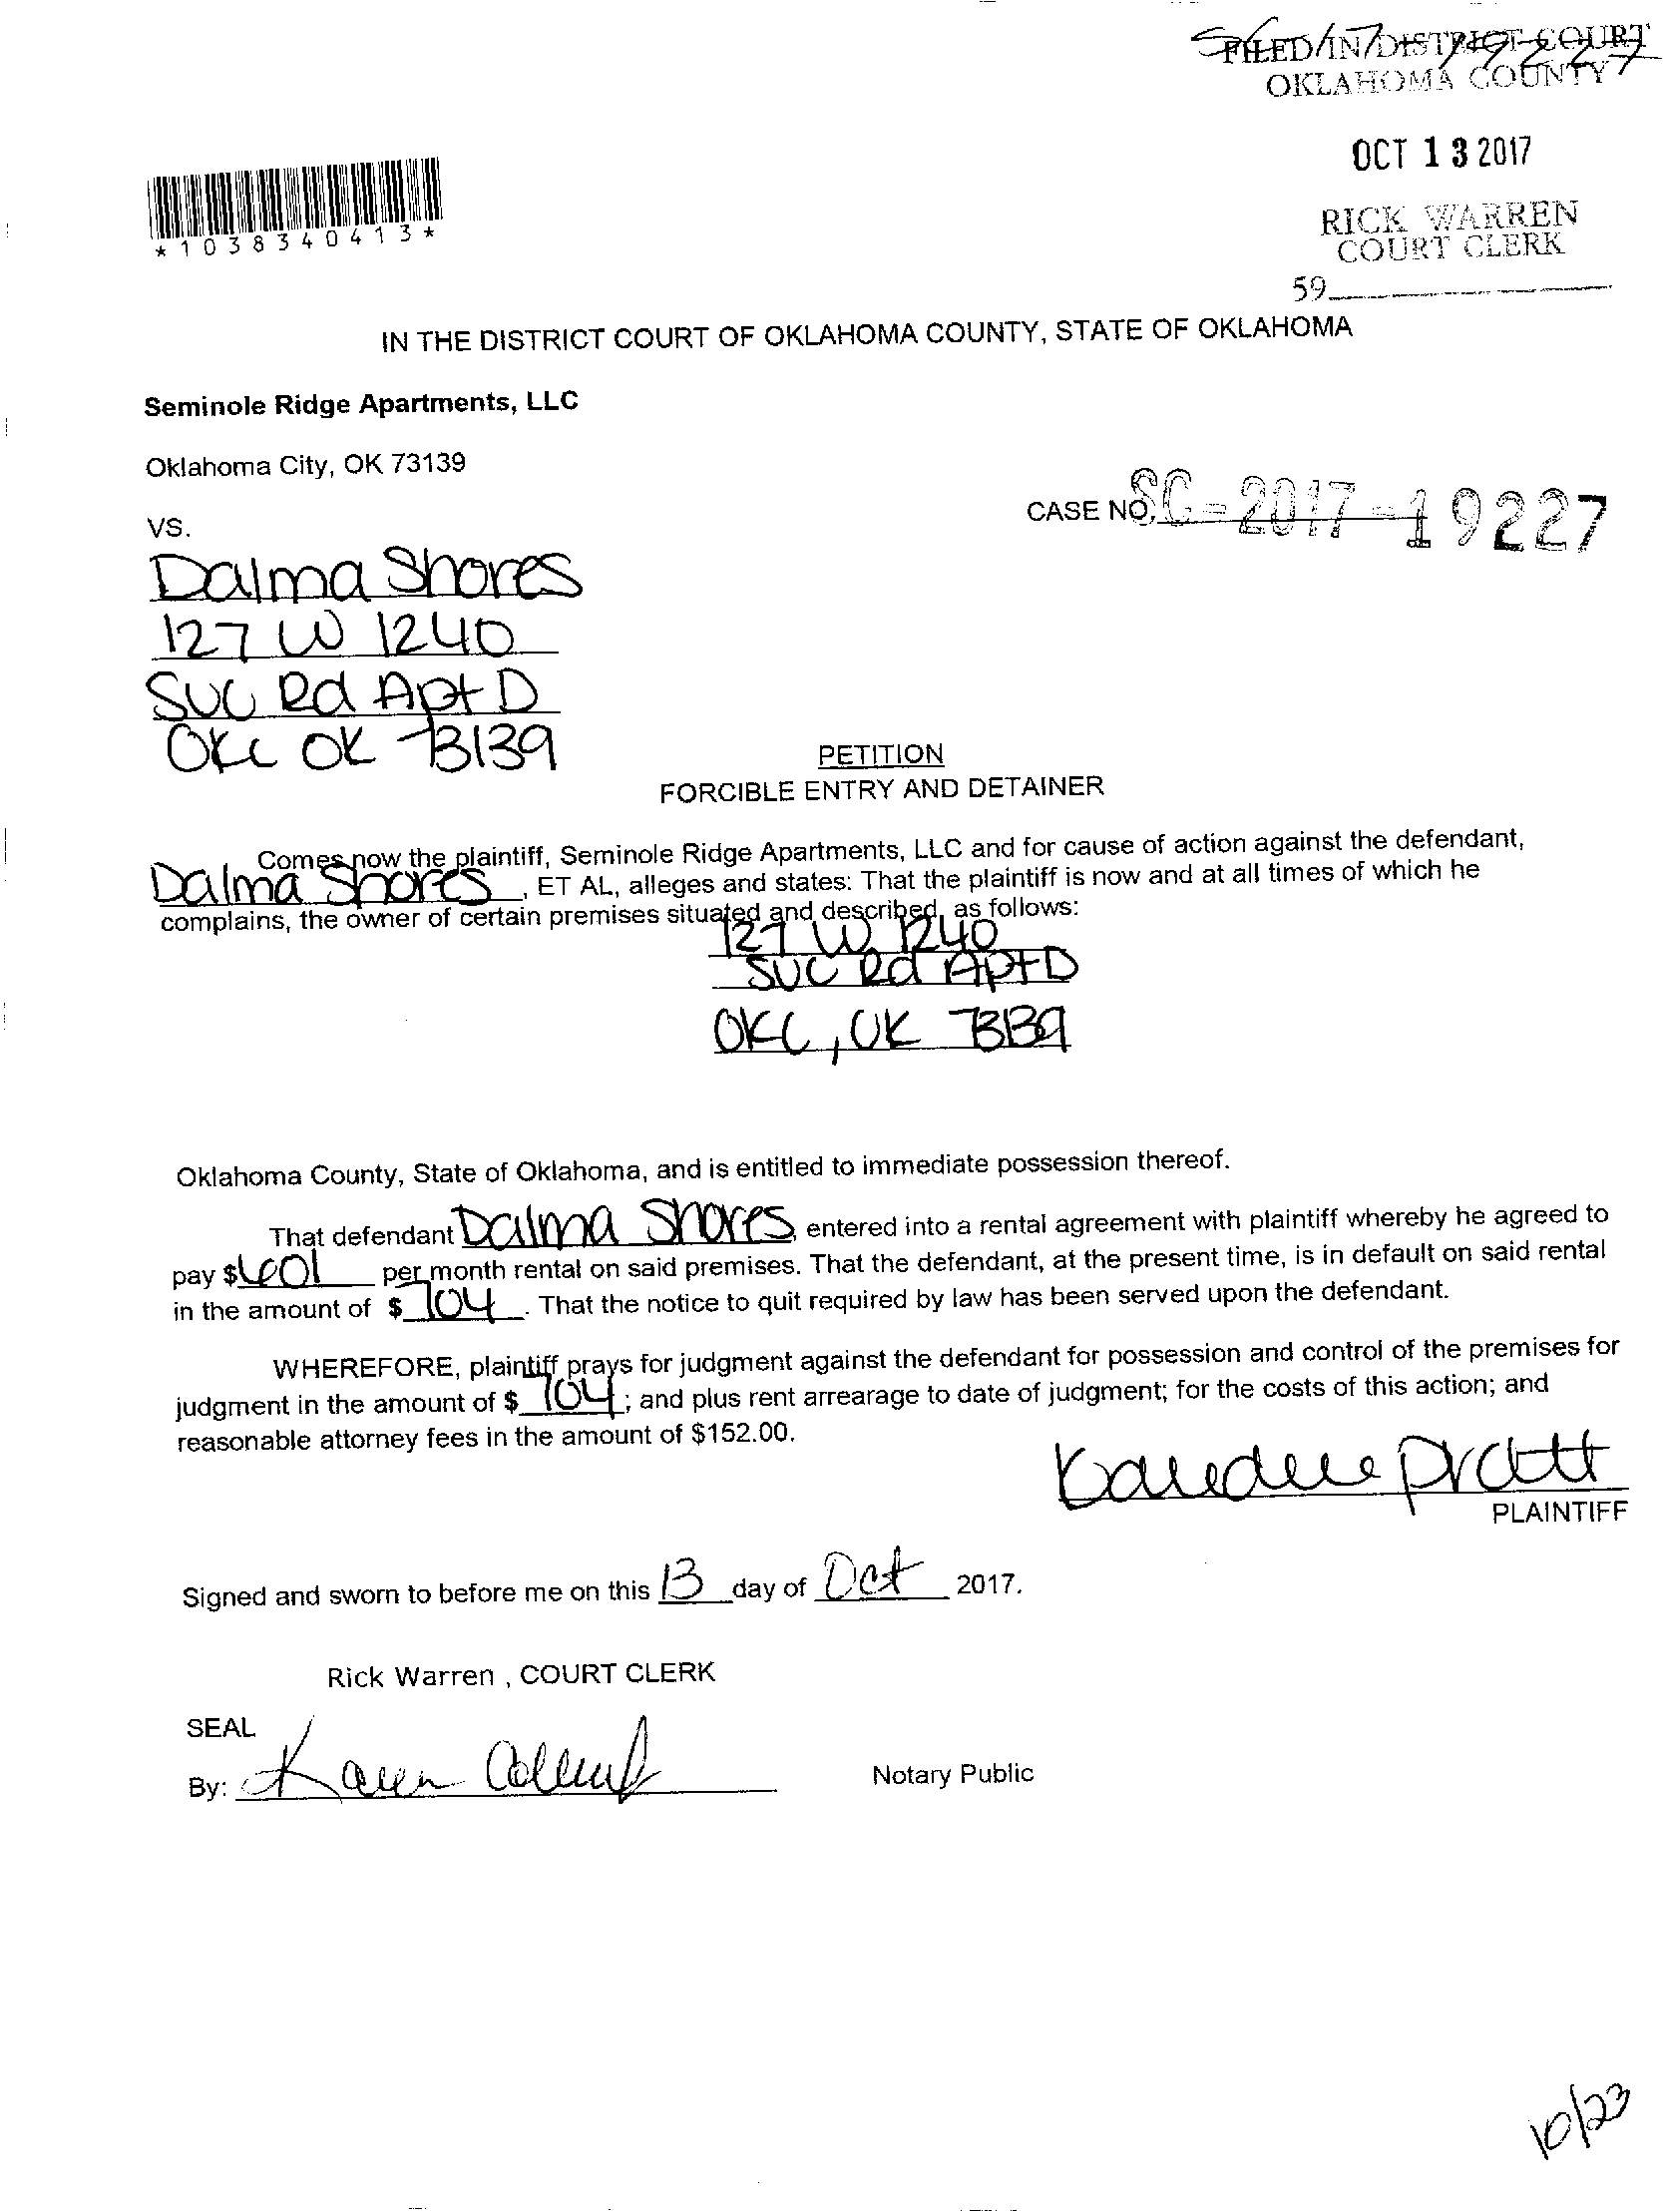 SC/17-19227
FILED IN DISTRICT COURT
OKLAHOMA COUNTY
OCT 13 2017
RICK WARREN
COURT CLERK
59
*1038340413*
IN THE DISTRICT COURT OF OKLAHOMA COUNTY, STATE OF OKLAHOMA
Seminole Ridge Apartments, LLC
Oklahoma City, OK 73139
CASE NO. SC-2017-19227
VS.
Dalma Shores
127 W 1240
SVC Rd Apt D
OKC OK 73139
PETITION
FORCIBLE ENTRY AND DETAINER
Comes now the plaintiff, Seminole Ridge Apartments, LLC and for cause of action against the defendant,
Dalma Shores, ET AL, alleges and states: That the plaintiff is now and at all times of which he
complains, the owner of certain premises situated and described, as follows:
127 W 1240
SVC Rd Apt D
OKC, OK 73139
Oklahoma County, State of Oklahoma, and is entitled to immediate possession thereof.
That defendant Dalma Shores, entered into a rental agreement with plaintiff whereby he agreed to
pay $601 per month rental on said premises. That the defendant, at the present time, is in default on said rental
in the amount of $ 704. That the notice to quit required by law has been served upon the defendant.
WHEREFORE, plaintiff prays for judgment against the defendant for possession and control of the premises for
judgment in the amount of $ 704; and plus rent arrearage to date of judgment; for the costs of this action; and
reasonable attorney fees in the amount of $152.00.
Pratt
PLAINTIFF
Signed and sworn to before me on this 13 day of Oct 2017.
Rick Warren , COURT CLERK
SEAL
By: Karen
Notary Public
10/23